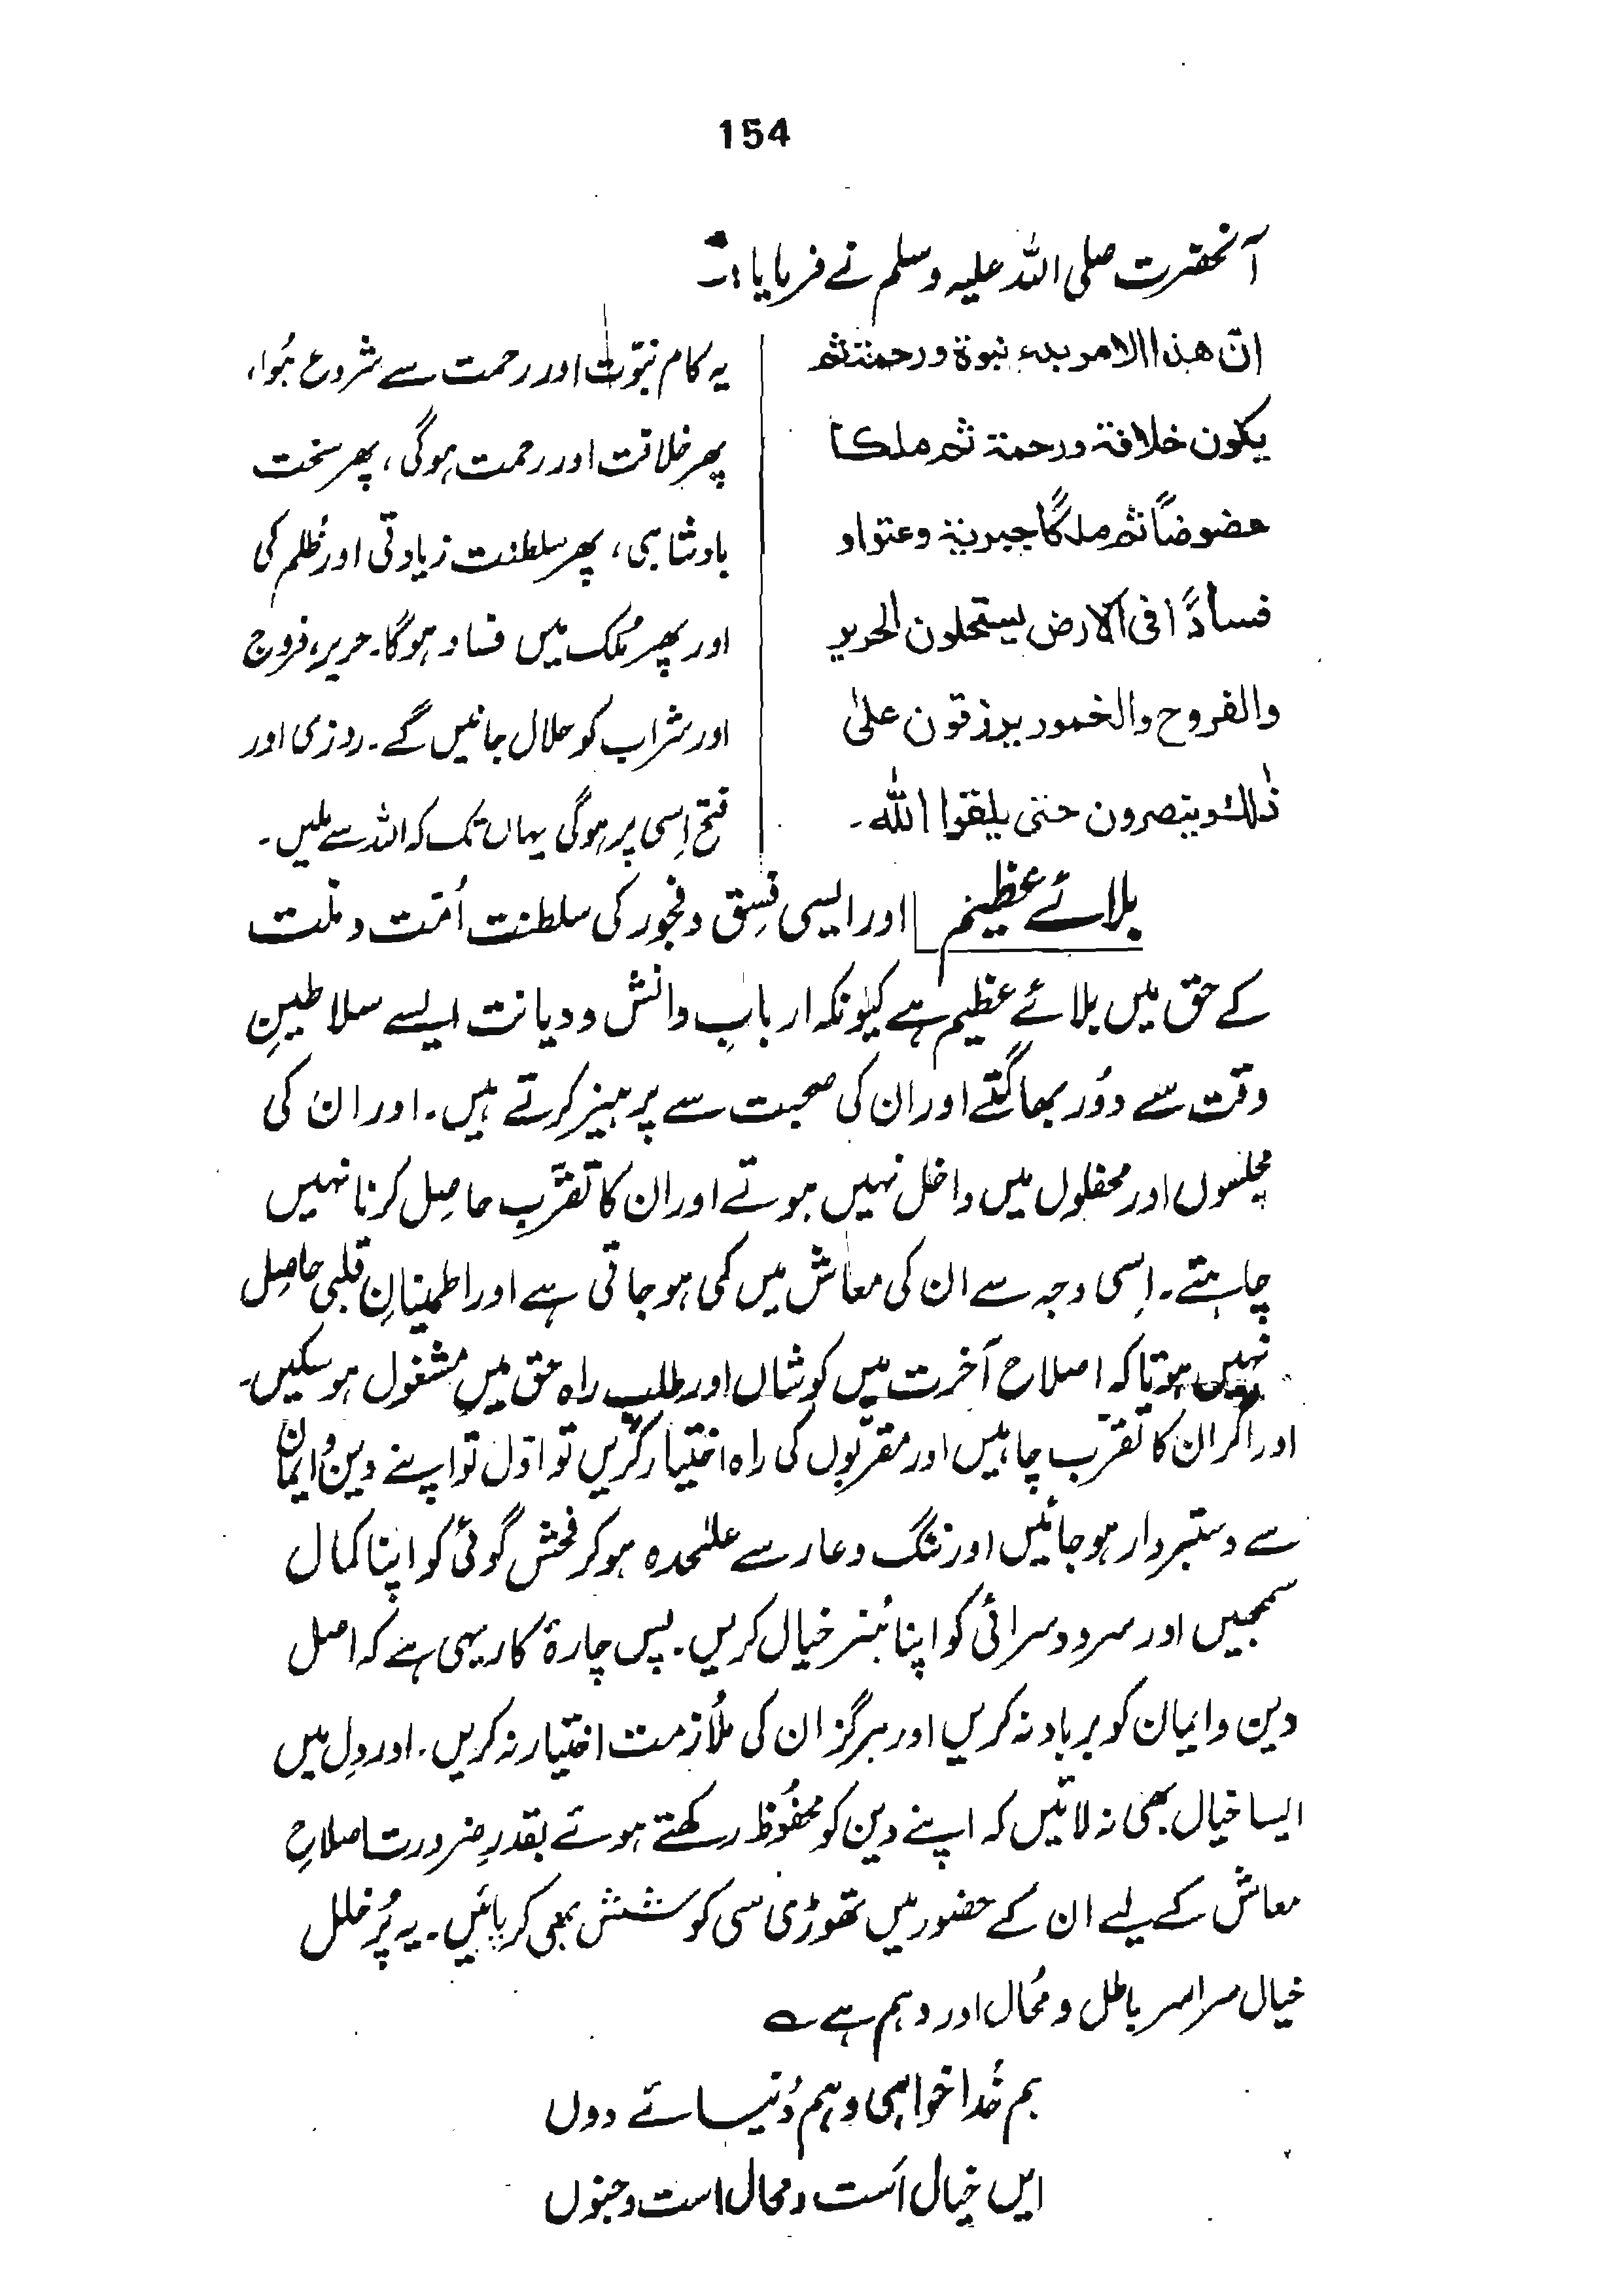 154
آنحضرت صلی اللہ علیہ وسلم نے فرمایا :-
انّ هذا الامر بدء نبوة ورحمة ثم
يكون خلافة ورحمة ثم ملكا
عضوضاً ثم ملكًا جبرية وعتوا و
فسادًا فى الارض يستحلون الحرير
والفروج والخمور يرزقون علىٰ
ذٰلك وينصرون حتى يلقوا اللّٰه۔
یہ کام نبوّت اور رحمت سے شروع ہُوا،
پھر خلافت اور رحمت ہوگی، پھر سخت
بادشاہی، پھر سلطنت زیادتی اور ظُلم کی
اور پھر مُلک میں فساد ہوگا۔ حریر، فروج
اور شراب کو حلال جانیں گے۔ روزی اور
فتح اِسی پر ہوگی یہاں تک کہ اللہ سے ملیں۔
بلائے عظیم اور ایسی فِسق و فجور کی سلطنت اُمّت و ملّت
کے حق میں بلائے عظیم ہے کیونکہ اربابِ دانش و دیانت ایسے سلاطینِ
وقت سے دُور بھاگتے اور ان کی صحبت سے پرہیز کرتے ہیں۔ اور ان کی
مجلسوں اور محفلوں میں داخل نہیں ہوتے اور ان کا تقرّب حاصِل کرنا نہیں
چاہتے۔ اِسی وجہ سے ان کی معاش میں کمی ہو جاتی ہے اور اطمینانِ قلبی حاصِل
نہیں ہوتا کہ اصلاح آخرت میں کوشاں اور طلب راہ حق میں مشغول ہوسکیں۔
اور اگر ان کا تقرّب چاہیں اور مقرّبوں کی راہ اختیار کریں تو اوّل تو اپنے دین و ایمان
سے دستبردار ہو جائیں اور ننگ و عار سے علیٰحدہ ہو کر فحش گوئی کو اپنا کمال
سمجھیں اور سرود سرائی کو اپنا ہُنر خیال کریں۔ پس چارۂ کار یہی ہے کہ اصل
دین و ایمان کو برباد نہ کریں اور ہرگز ان کی مُلازمت اختیار نہ کریں۔ اور دِل میں
ایسا خیال بھی نہ لائیں کہ اپنے دین کو محفُوظ رکھتے ہوئے بقدرِ ضرورت اصلاحِ
معاش کے لیے ان کے حضور میں تھوڑی سی کوشش بھی کر پائیں۔ یہ پُر خلل
خیال سراسر باطل و مُحال اور وہم ہے ؎
ہم خُدا خواہی و ہم دُنیائے دوں
ایں خیال اَست و محال است و جنوں